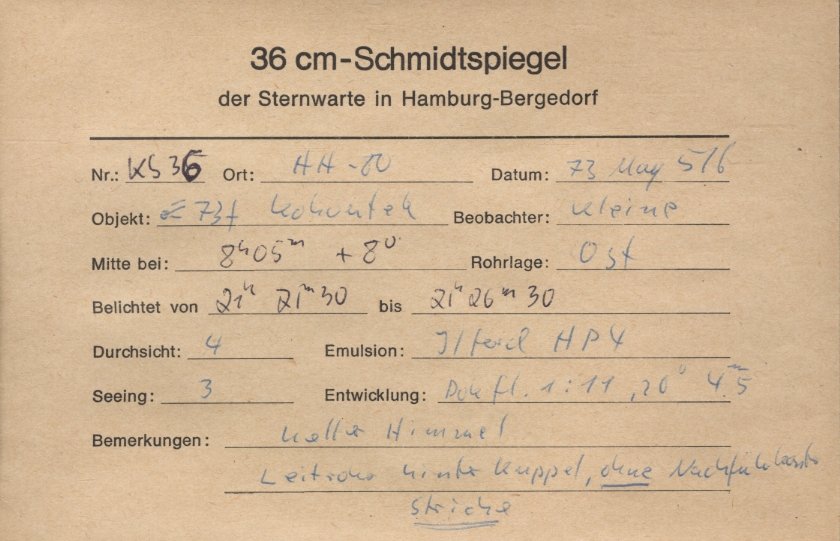 36 cm-Schmidtspiegel
der Sternwarte in Hamburg-Bergedorf
Nr.: KS 36 Ort: HH-80 Datum: 73 May 5/6
Objekt: 73f Kohoutek Beobachter: Kleine
Mitte bei: 8h05m +8° Rohrlage: Ost
Belichtet von 21h 21m 30 bis 21h 26m 30
Durchsicht: 4 Emulsion: Ilford HP4
Seeing: 3 Entwicklung: Dok fl. 1:11, 20° 4m.5
Bemerkungen: heller Himmel
Leitrohr hinter Kuppel, ohne
Striche